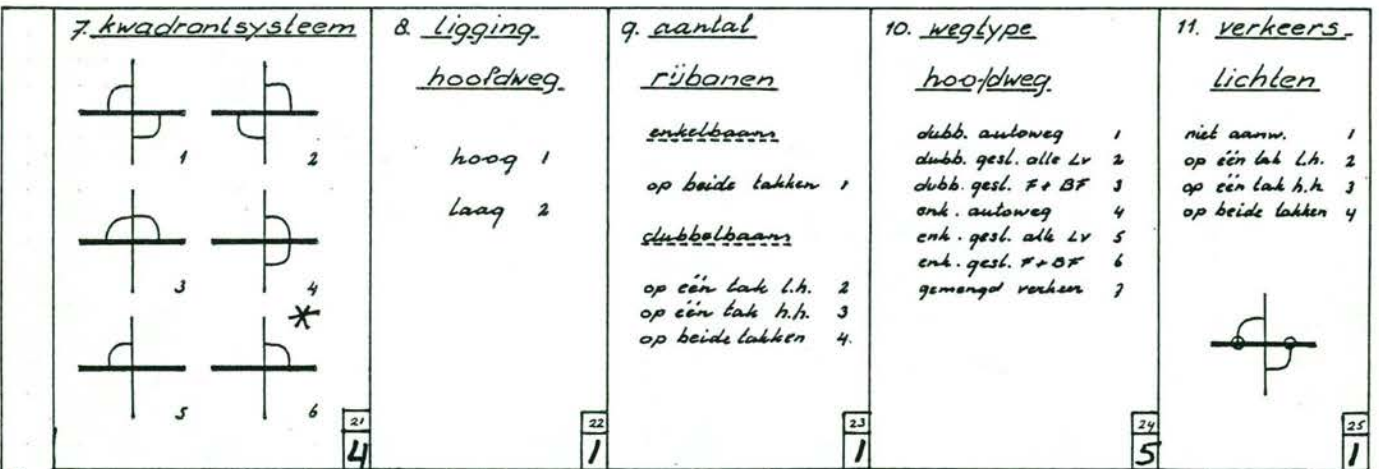 7. kwadrantsysteem
1
2
3
4
*
5
6
21
4
8. ligging
hoofdweg
hoog 1
laag 2
22
1
9. aantal
rijbanen
enkelbaans
op beide takken 1
dubbelbaans
op één tak l.h. 2
op één tak h.h. 3
op beide takken 4.
23
1
10. wegtype
hoofdweg
dubb. autoweg 1
dubb. gesl. alle Lv 2
dubb. gesl. F + BF 3
enk. autoweg 4
enk. gesl. alle Lv 5
enk. gesl. F + BF 6
gemengd verkeer 7
24
5
11. verkeers-
lichten
niet aanw. 1
op één tak l.h. 2
op één tak h.h 3
op beide takken 4
25
1